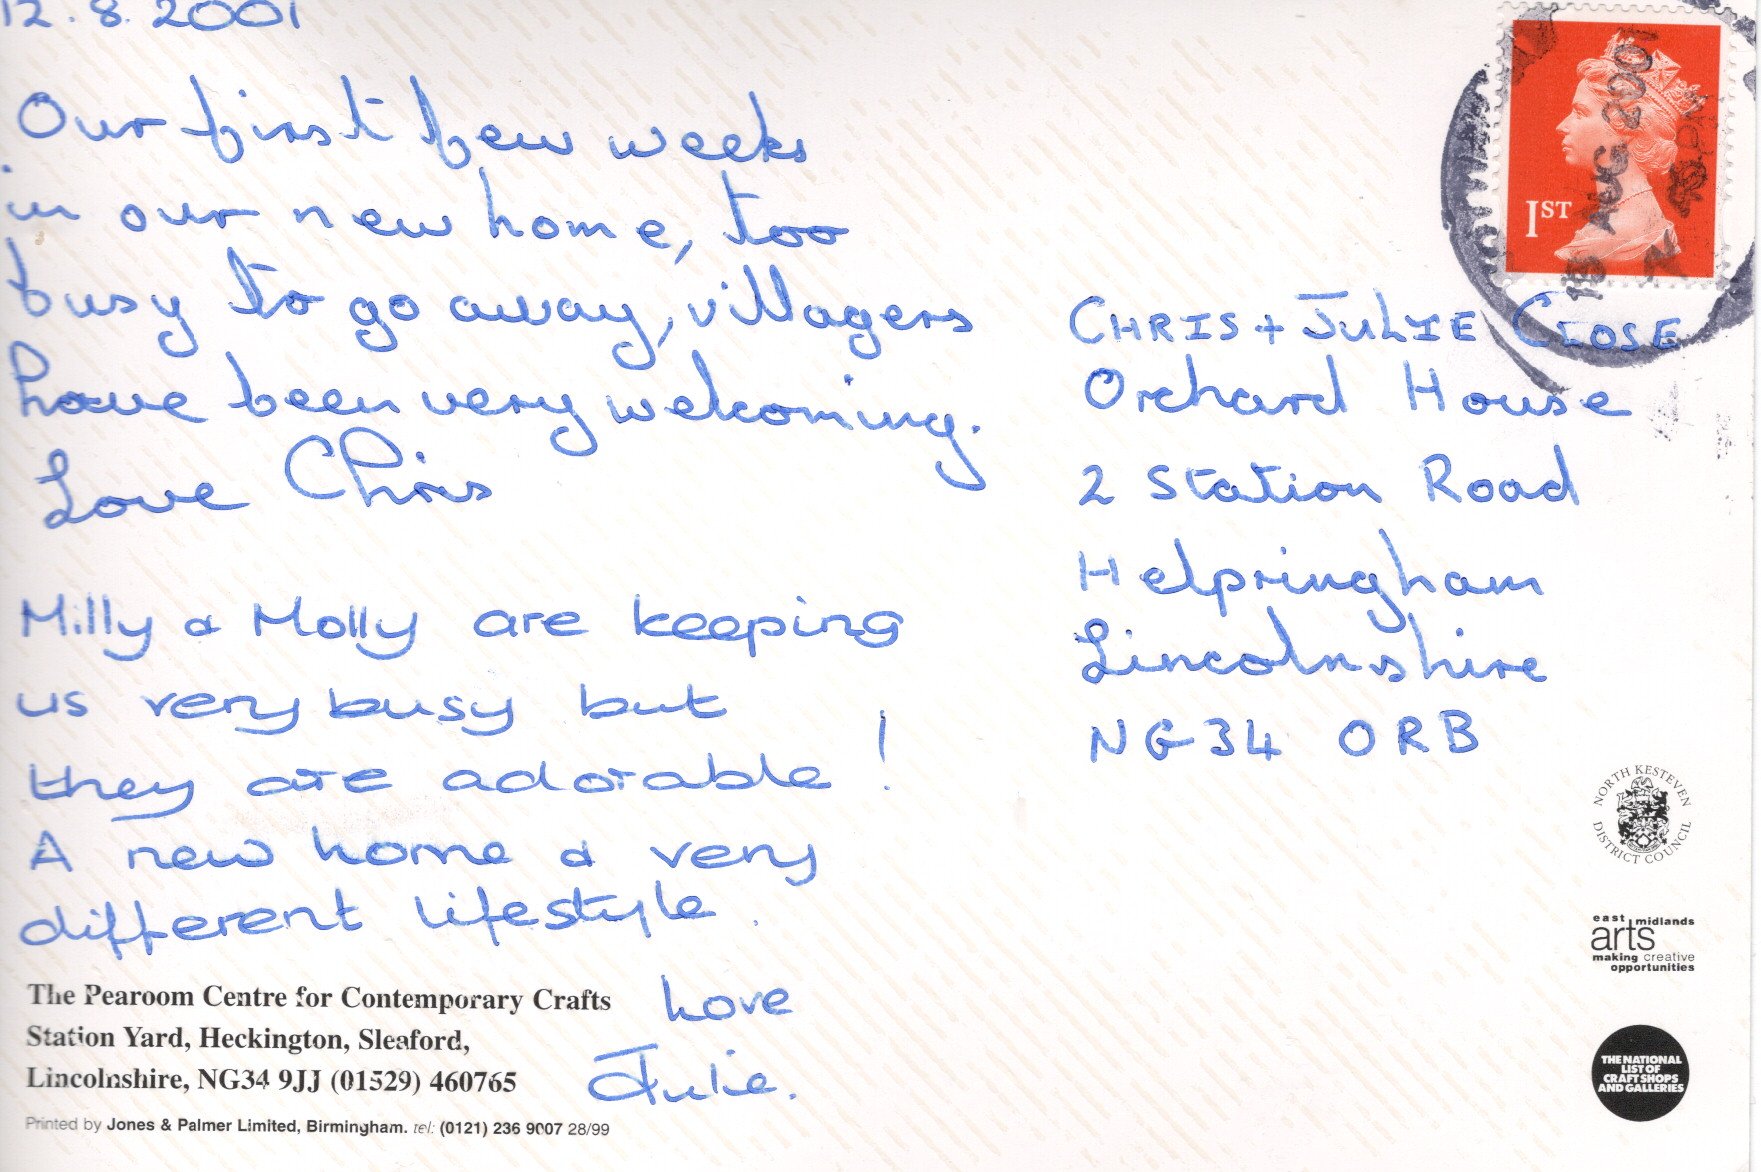 12.8.2001
Our first few weeks
in our new home, too
busy to go away, villagers
have been very welcoming.
Love Chris
Milly & Molly are keeping
us very busy but
they are adorable!
A new home & very
different lifestyle.
Love
Julie.
The Pearoom Centre for Contemporary Crafts
Station Yard, Heckington, Sleaford,
Lincolnshire, NG34 9JJ (01529) 460765
Printed by Jones & Palmer Limited, Birmingham. tel: (0121) 236 9007 28/99
1ST
AUG 2001
CHRIS + JULIE CLOSE
Orchard House
2 Station Road
Helpringham
Lincolnshire
NG34 ORB
NORTH KESTEVEN
DISTRICT COUNCIL
east midlands
arts
making creative
opportunities
THE NATIONAL
LIST OF
CRAFT SHOPS
AND GALLERIES